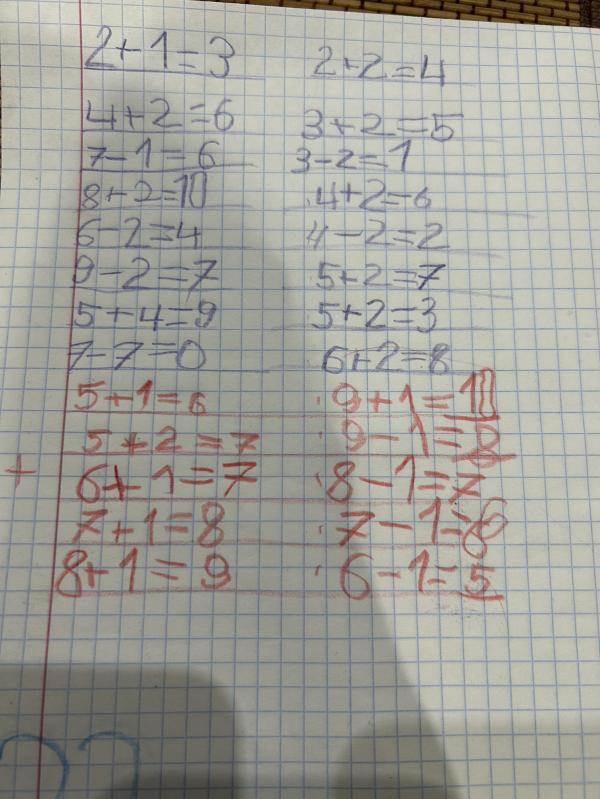 2+1=3 2+2=4
4+2=6 3+2=5
7-1=6 3-2=1
8+2=10 4+2=6
6-2=4 4-2=2
9-2=7 5+2=7
5+4=9 5+2=3
7-7=0 6+2=8
5+1=6 9+1=10
5+2=7 9-1=8
+ 6+1=7 8-1=7
7+1=8 7-1=6
8+1=9 6-1=5